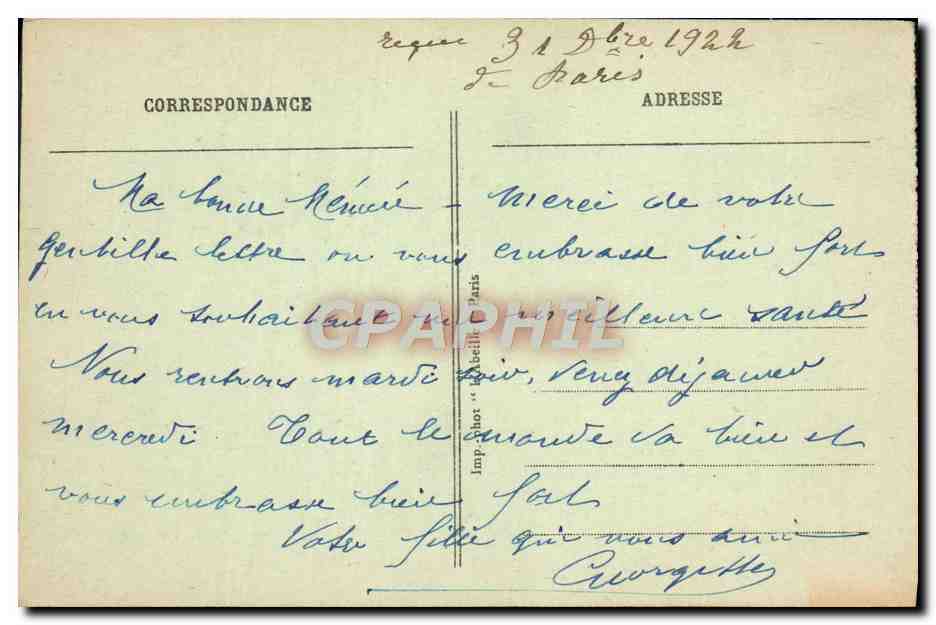 reçue 31 Dbre 1922
de Paris
CORRESPONDANCE
ADRESSE
Ma bonne Mémée - Merci de votre
gentille lettre on vous embrasse bien fort
en vous souhaitant une meilleure santé
Nous rentrons mardi soir, venez déjeuner
mercredi. Tout le monde va bien et
vous embrasse bien fort
Votre fille qui vous aime
Georgette
Imp. Phot "l'Abeille" Paris
CPAPHIL